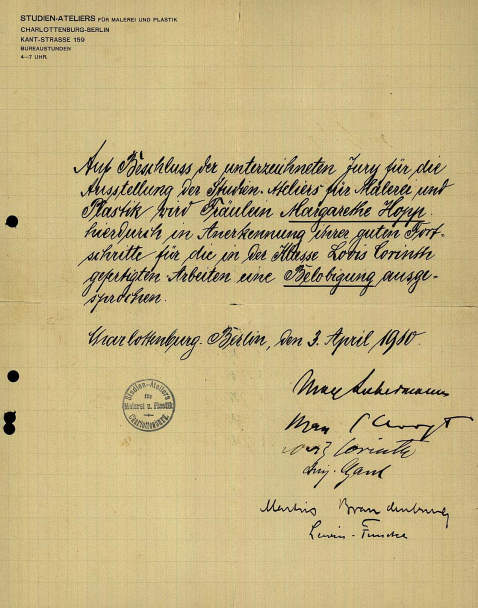 STUDIEN-ATELIERS FÜR MALEREI UND PLASTIK
CHARLOTTENBURG-BERLIN
KANT-STRASSE 159
BUREAUSTUNDEN
4–7 UHR
Auf Beschluss der unterzeichneten Jury für die
Ausstellung der Studien-Ateliers für Malerei und
Plastik wird Fräulein Margarethe Hopp
hierdurch in Anerkennung ihrer guten Fort-
schritte für die in der Klasse Lovis Corinth
gefertigten Arbeiten eine Belobigung ausge-
sprochen.
Charlottenburg-Berlin, den 3. April 1910.
Studien-Ateliers
für
Malerei u. Plastik
Charlottenburg.
Max Liebermann
Max Slevogt
Lovis Corinth
Aug. Gaul
Martin Brandenburg
Lewin-Funcke